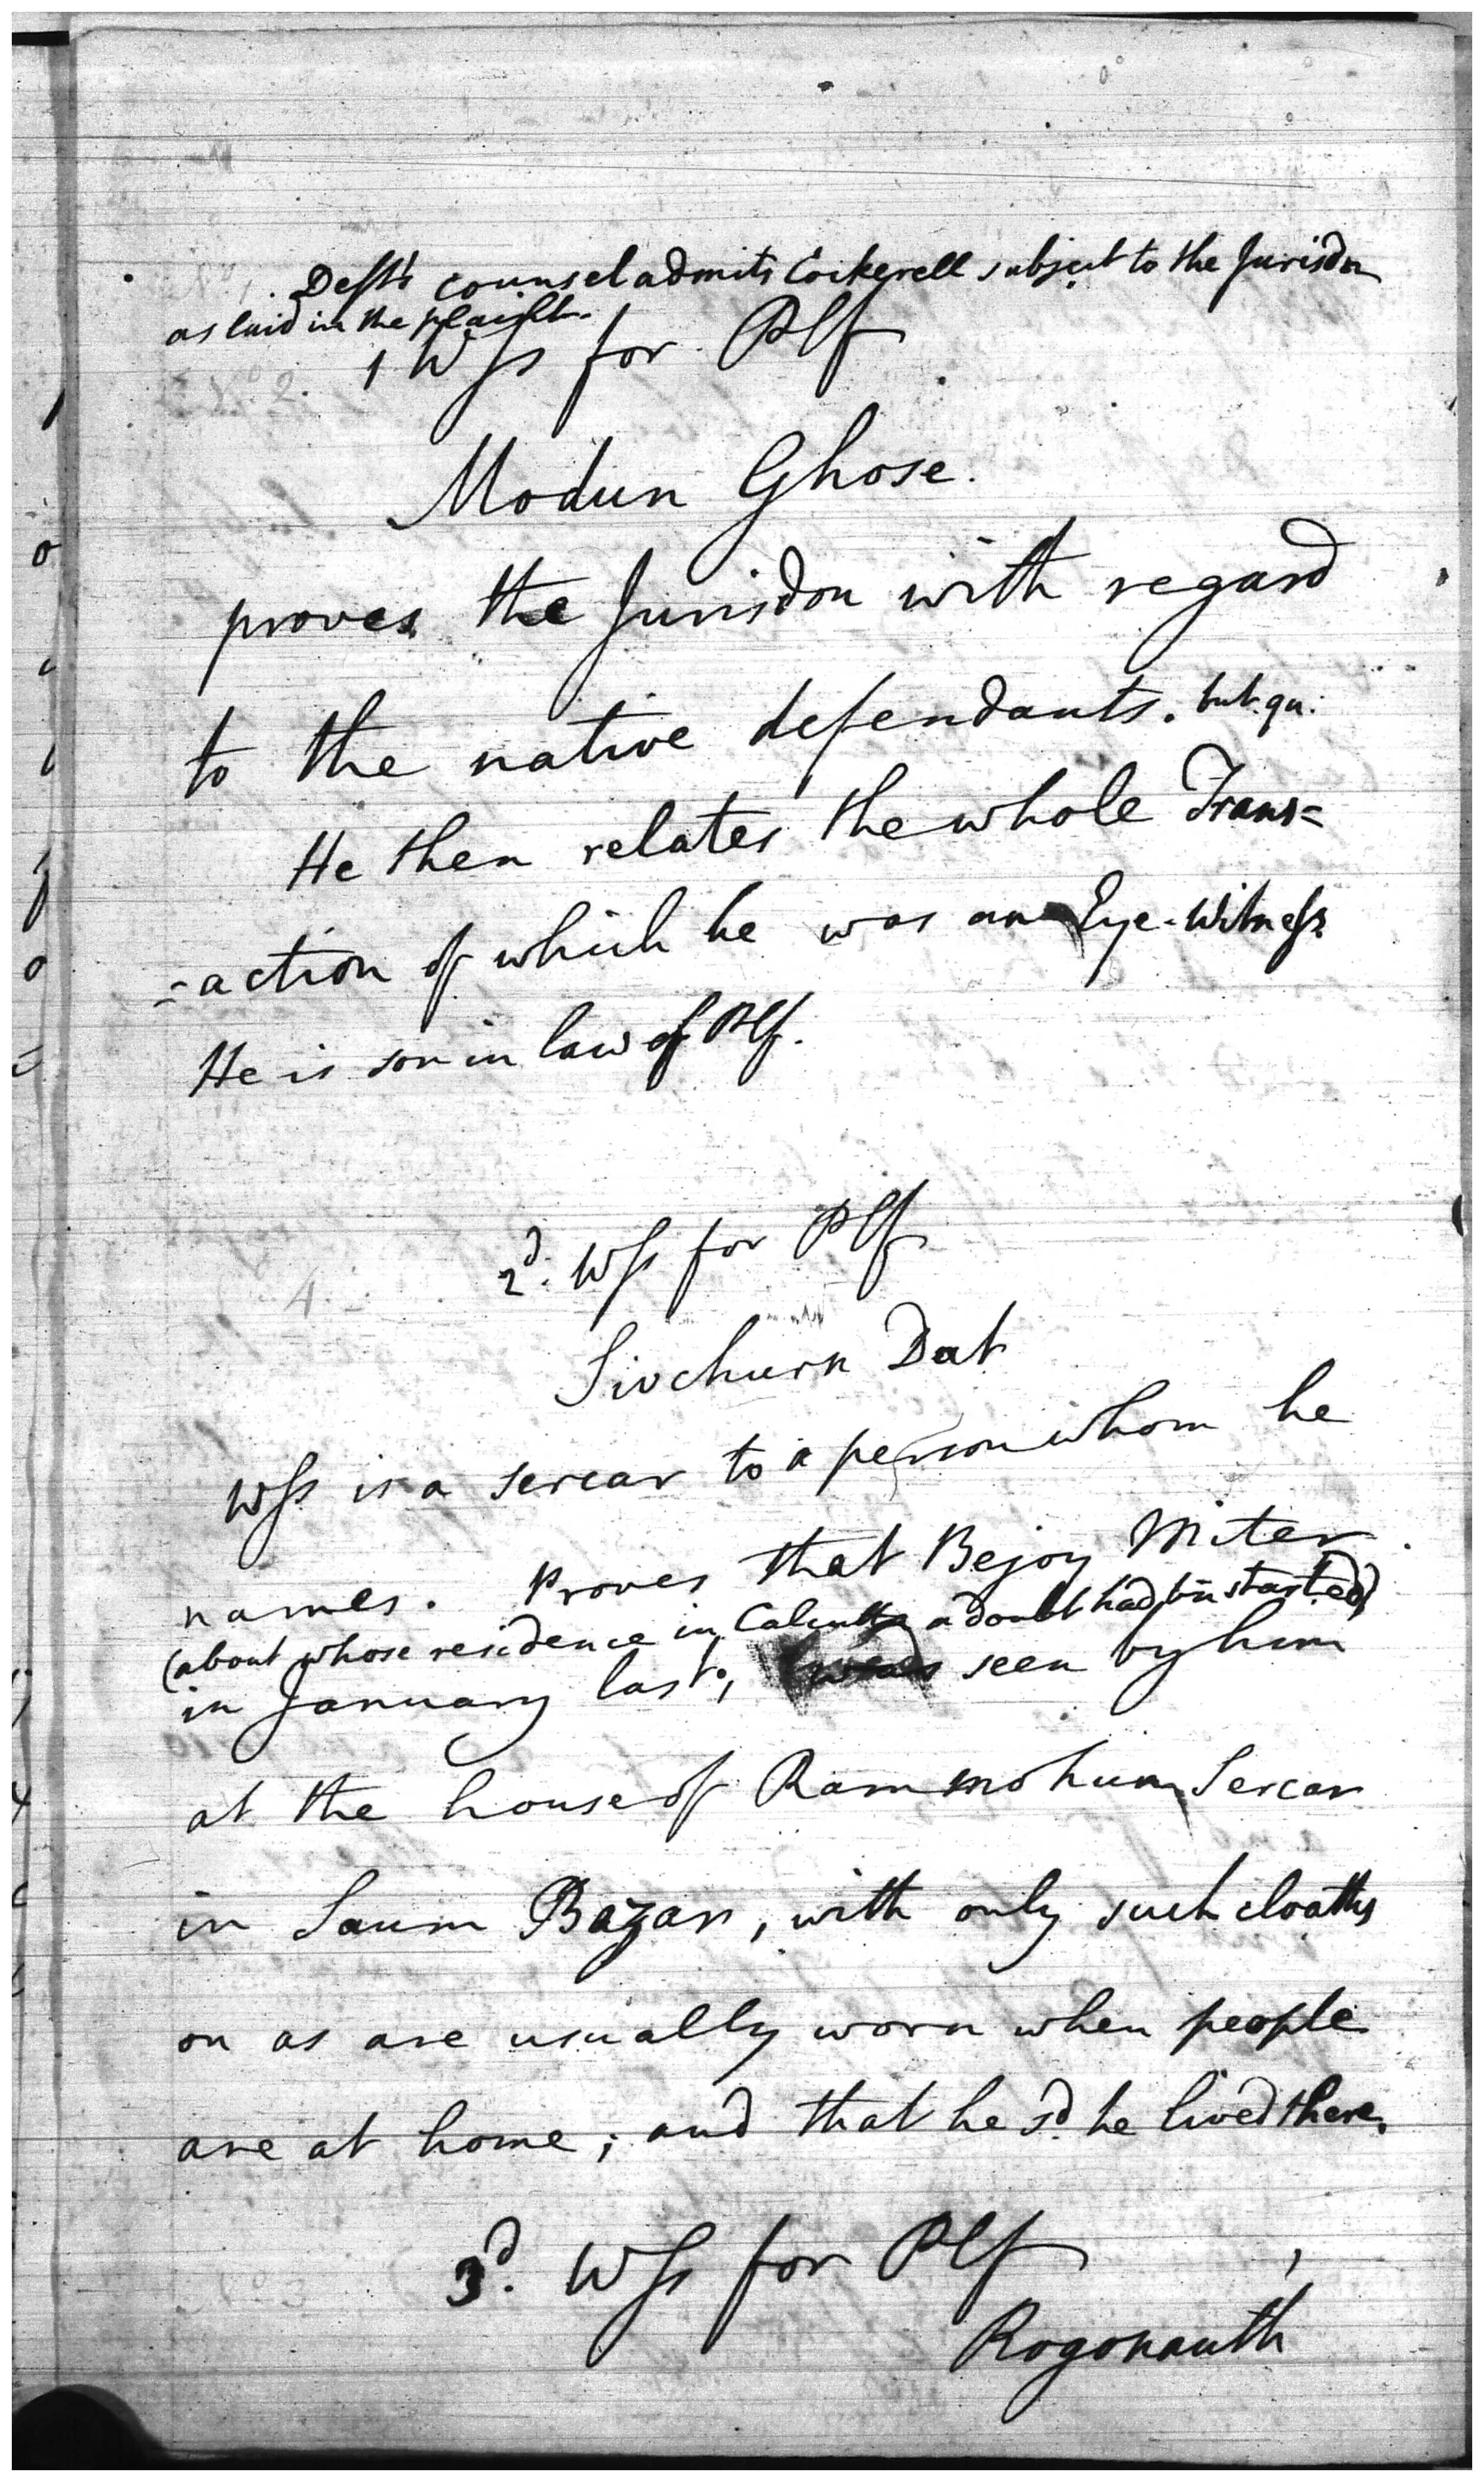 Defts counsel admits Cockerell subject to the Jurisdon
as laid in the plaint.
1 Wss for Plf
Modun Ghose.
proves the Jurisdon with regard
to the native defendants. but qu.
He then relates the whole Trans=
=action of which he was an Eye-Witness.
He is son in law of Plf.
2d. Wss for Plf
Sivchurn Dat
Wss is a sercar to a person whom he
names. Proves that Bejoy Miter
(about whose residence in Calcutta a doubt had bn started)
in January last, was seen by him
at the house of Rammohun Sercar
in Saum Bazar, with only such cloaths
on as are usually worn when people
are at home; and that he sd. he lived there.
3d. Wss for Plf
Rogonauth